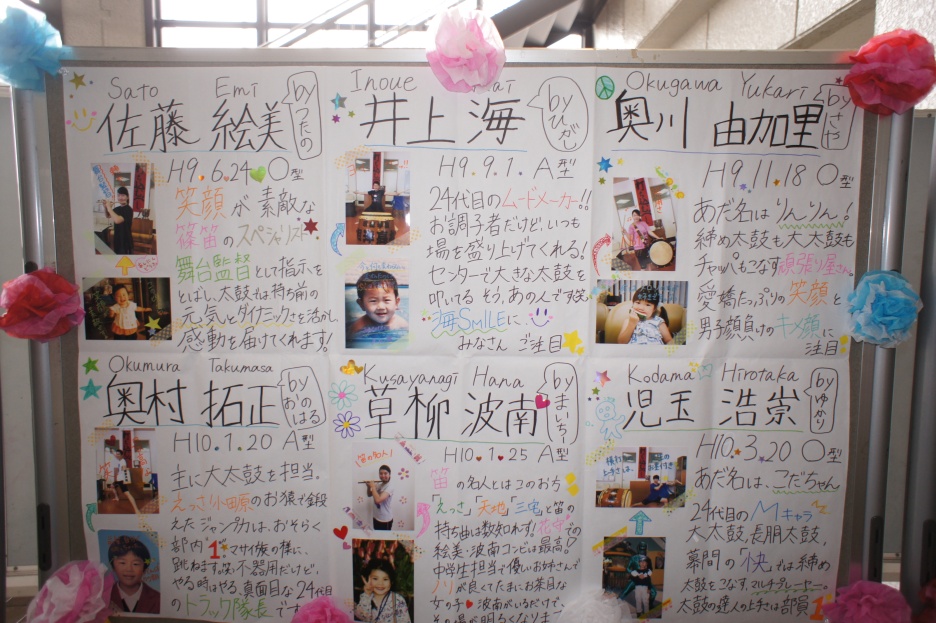 Sato Emi
佐藤 絵美
byつたの
H9.6.24 O型
笑顔が素敵な
篠笛のスペシャリスト
舞台監督として指示を
とばし、太鼓は持ち前の
元気とダイナミックさを活かし
感動を届けてくれます!
Inoue
井上 海
byひがし
H9.9.1. A型
24代目のムードメーカー!!
お調子者だけど、いつも
場を盛り上げてくれる!
センターで大きな太鼓を
叩いてる そう、あの人です笑
海SMILEに、
みなさん ご注目
Okugawa Yukari
奥川 由加里
byさや
H9.11.18 O型
あだ名はりんりん!
締め太鼓も大太鼓も
チャッパもこなす頑張り屋さん
愛嬌たっぷりの笑顔と
男子顔負けのキメ顔に
注目
Okumura Takumasa
奥村 拓正
byおのはる
H10.1.20 A型
主に大太鼓を担当。
えっさ小田原のお猿で鍛
えたジャンプ力は、おそらく
部内"1"マサイ族の様に、
跳ねます。笑 不器用だけど、
やる時はやる、真面目な24代目
のトラック隊長です
Kusayanagi Hana
草柳 波南
byまいちー
H10.1.25 A型
笛の名人とはこの方
「えっさ」「天地」「三宅」と笛の
持ち曲は数知れず!花守での
絵美・波南コンビは最高!
中学生担当で優しいお姉さんで
ノリが良くてたまにお茶目な
女の子 波南がいるだけで、
その場が明るくなりま
(笛の名人)
Kodama Hirotaka
児玉 浩崇
byゆかり
H10.3.20 O型
あだ名は、こだちゃん
24代目のMキャラ
大太鼓、長胴太鼓、
幕間の「快」では締め
太鼓をこなす、マルチプレーヤー。
太鼓の達人の上手さは部員1